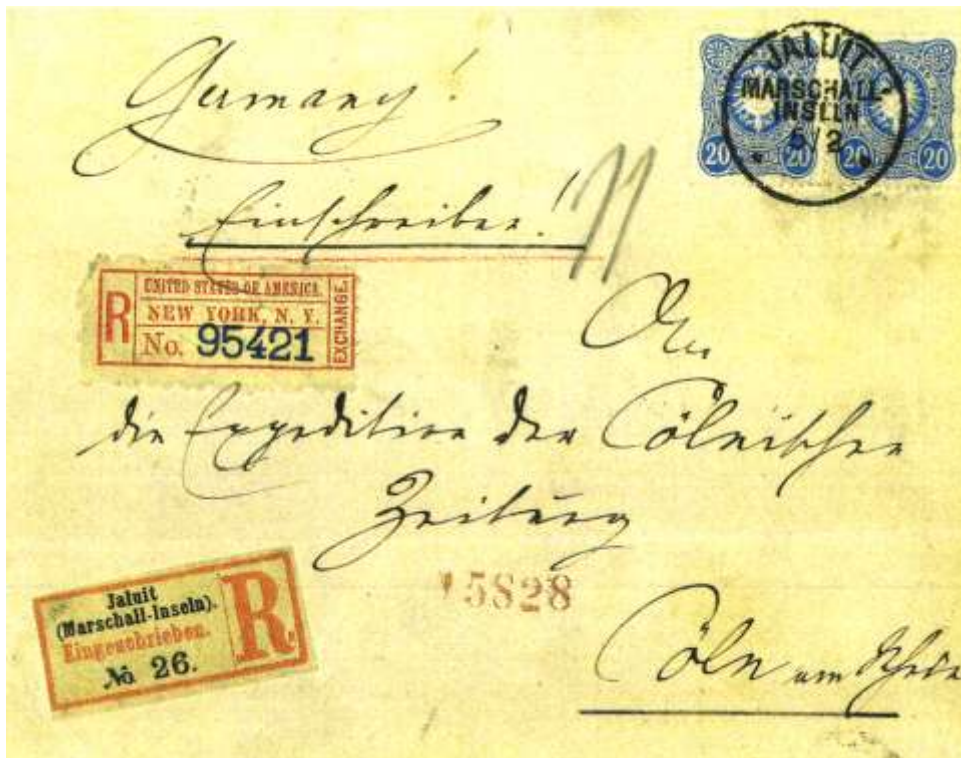 Germany!
JALUIT
MARSCHALL-
INSELN
5/2
20 20 20 20
Einschreiben!
R
UNITED STATES OF AMERICA.
NEW YORK, N. Y.
No. 95421
EXCHANGE.
An
die Expedition der Cölnischen
Zeitung
15828
Jaluit
(Marschall-Inseln).
Eingeschrieben.
No 26.
R
Cöln am Rhein